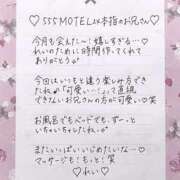 ♡555MOTEL本指のお兄さん♡
今月も会えた〜！嬉しすぎる…♡
れいのために時間作ってくれて
ありがとう♂
今回はいつもと違う楽しみ方でき
たね♪「可愛い…！」って直視
できないお兄さんの方が可愛い♡笑
お風呂でもベッドでも、ずーっと
いちゃいちゃしたね♪
またいっぱいいじめたいな…♡
マッサージも！もっと！笑
♡れい♡